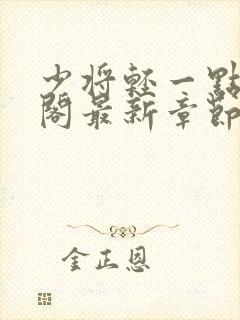 少将輕一點
閣最新章節
金正恩